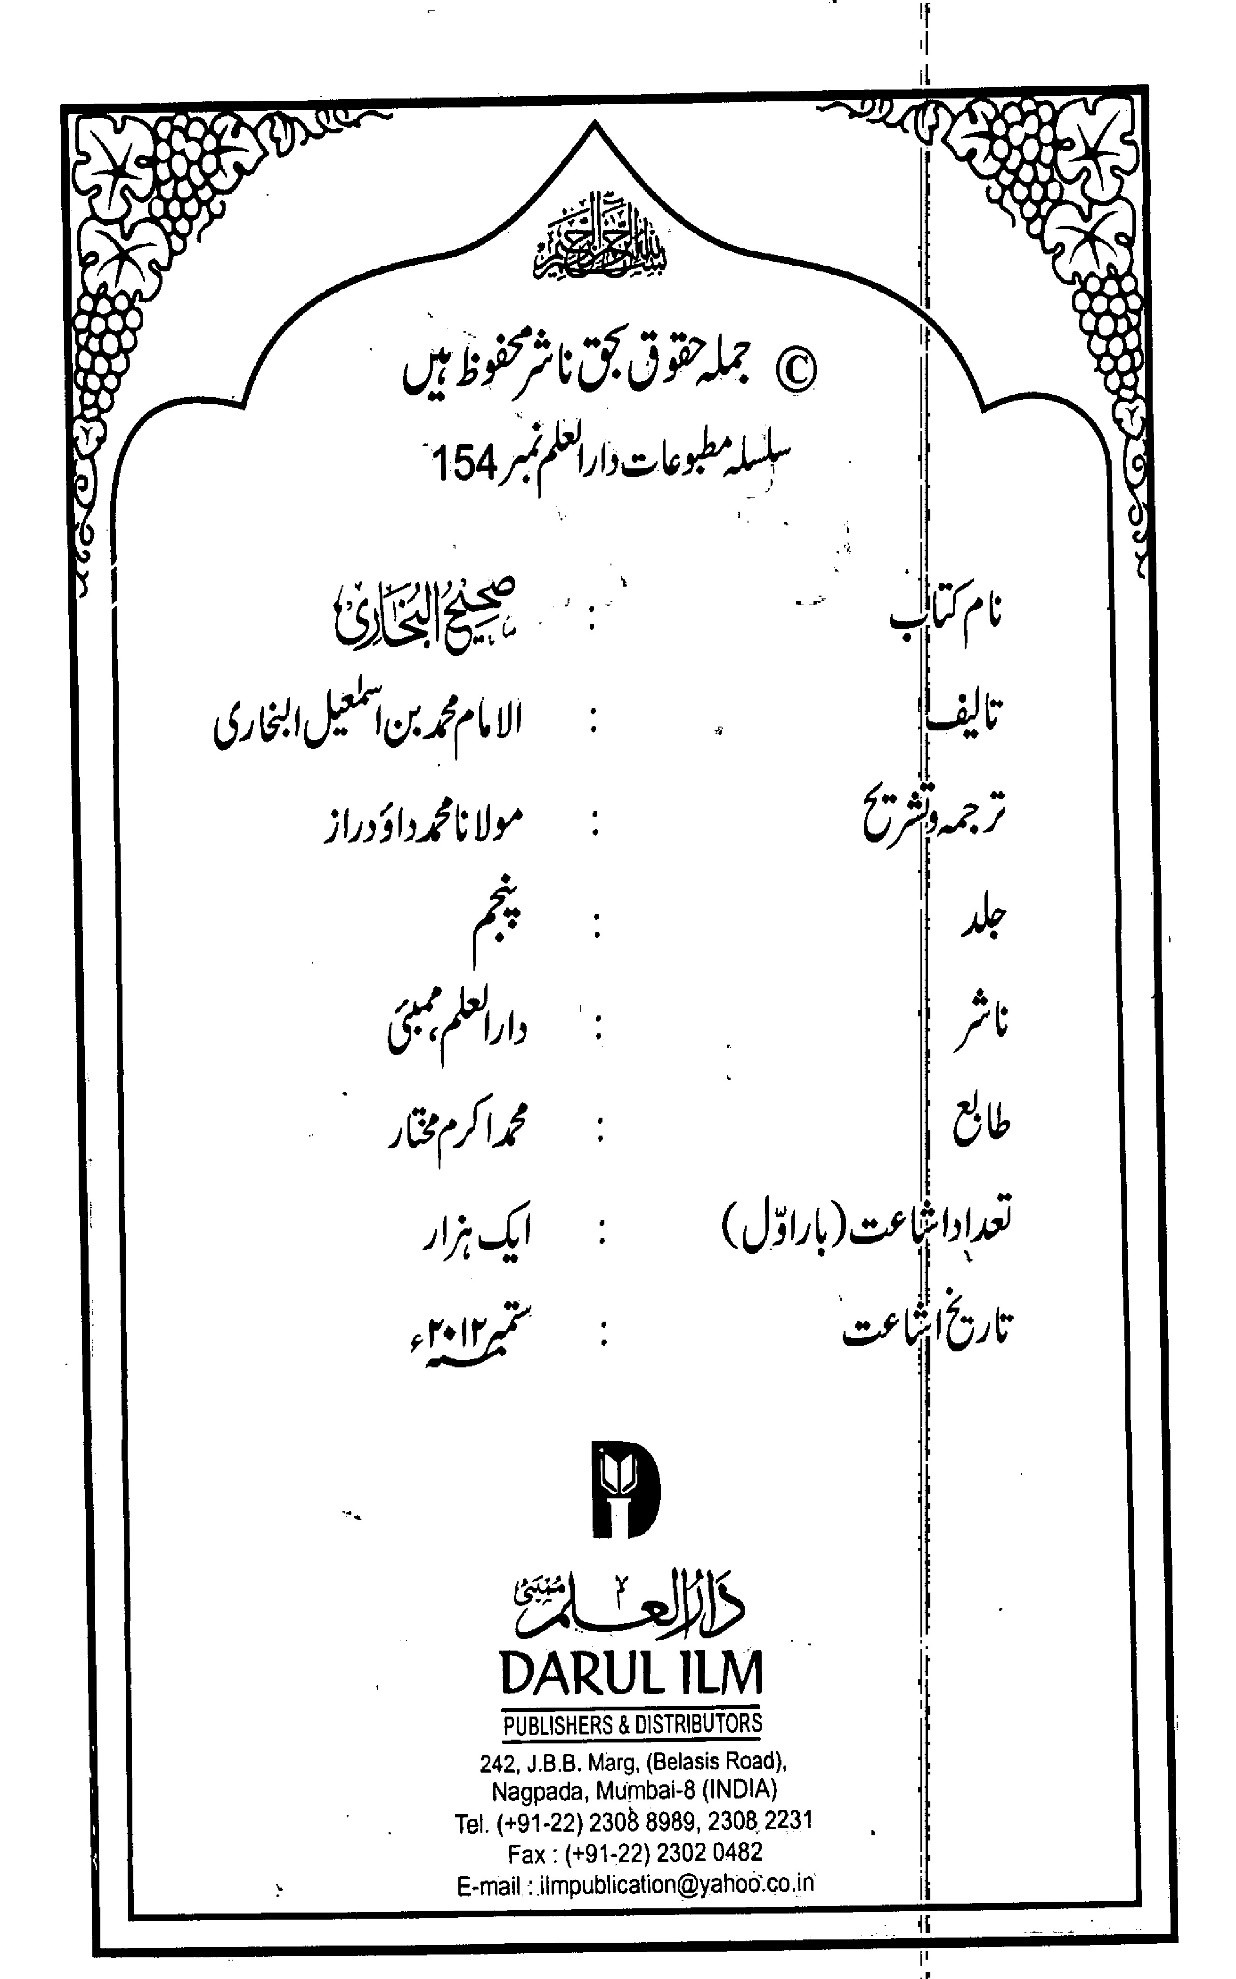 بسم الله الرحمن الرحيم
© جملہ حقوق بحق ناشر محفوظ ہیں
سلسلہ مطبوعات دارالعلم نمبر 154
نام کتاب : صحیح البخاری
تالیف : الامام محمد بن اسمٰعیل البخاری
ترجمہ وتشریح : مولانا محمد داؤد راز
جلد : پنجم
ناشر : دارالعلم، ممبئی
طابع : محمد اکرم مختار
تعداد اشاعت (بار اوّل) : ایک ہزار
تاریخ اشاعت : ستمبر ۲۰۱۲ء
دار العلم ممبئی
DARUL ILM
PUBLISHERS & DISTRIBUTORS
242, J.B.B. Marg, (Belasis Road),
Nagpada, Mumbai-8 (INDIA)
Tel. (+91-22) 2308 8989, 2308 2231
Fax : (+91-22) 2302 0482
E-mail : ilmpublication@yahoo.co.in